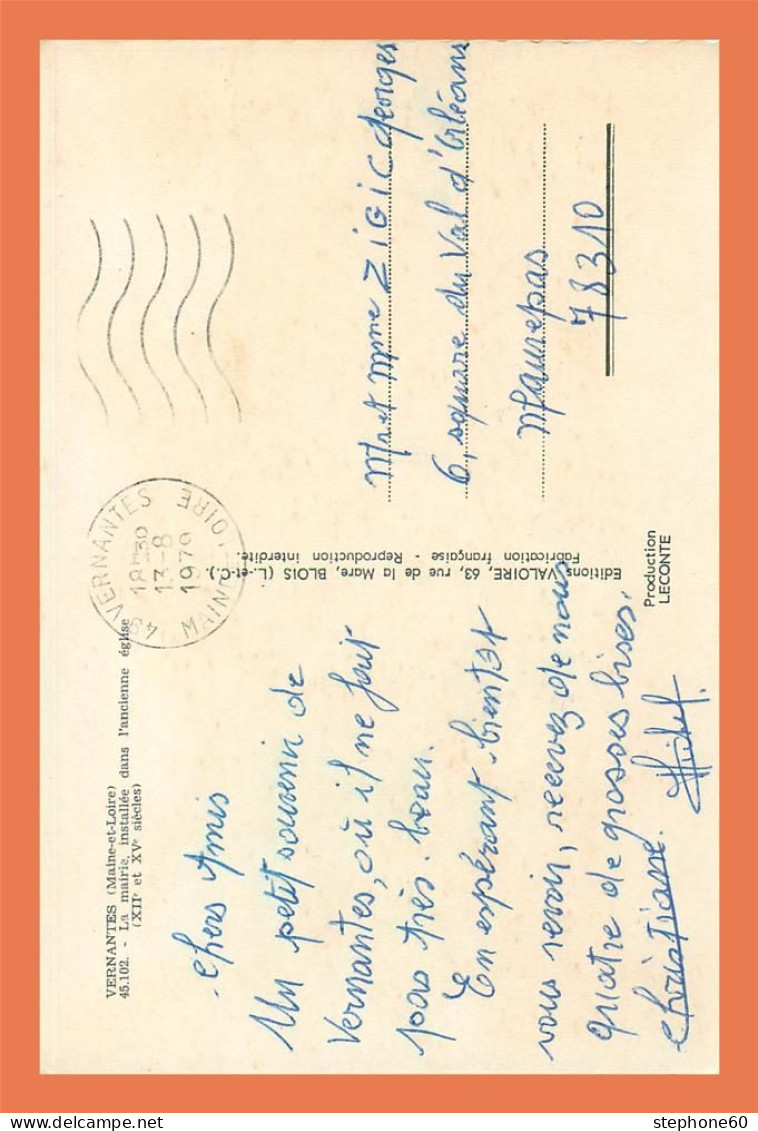 VERNANTES (Maine-et-Loire)
45.102. - La mairie, installée dans l'ancienne église
(XIIe et XVe siècles)
49 VERNANTES
18H30
13-8
1979
MAINE LOIRE
Chers Amis
Un petit souvenir de
Vernantes, où il ne fait
pas très beau.
En espérant bientôt
vous revoir, recevez de nous
quatre de grosses bises.
Christiane. Michel.
Editions VALOIRE, 63, rue de la Mare, BLOIS (L.-et-C.).
Fabrication française - Reproduction interdite.
Production
LECONTE
Mr et Mme ZIGIC Georges
6, square du Val d'Orléans
Maurepas
78310
stephone60